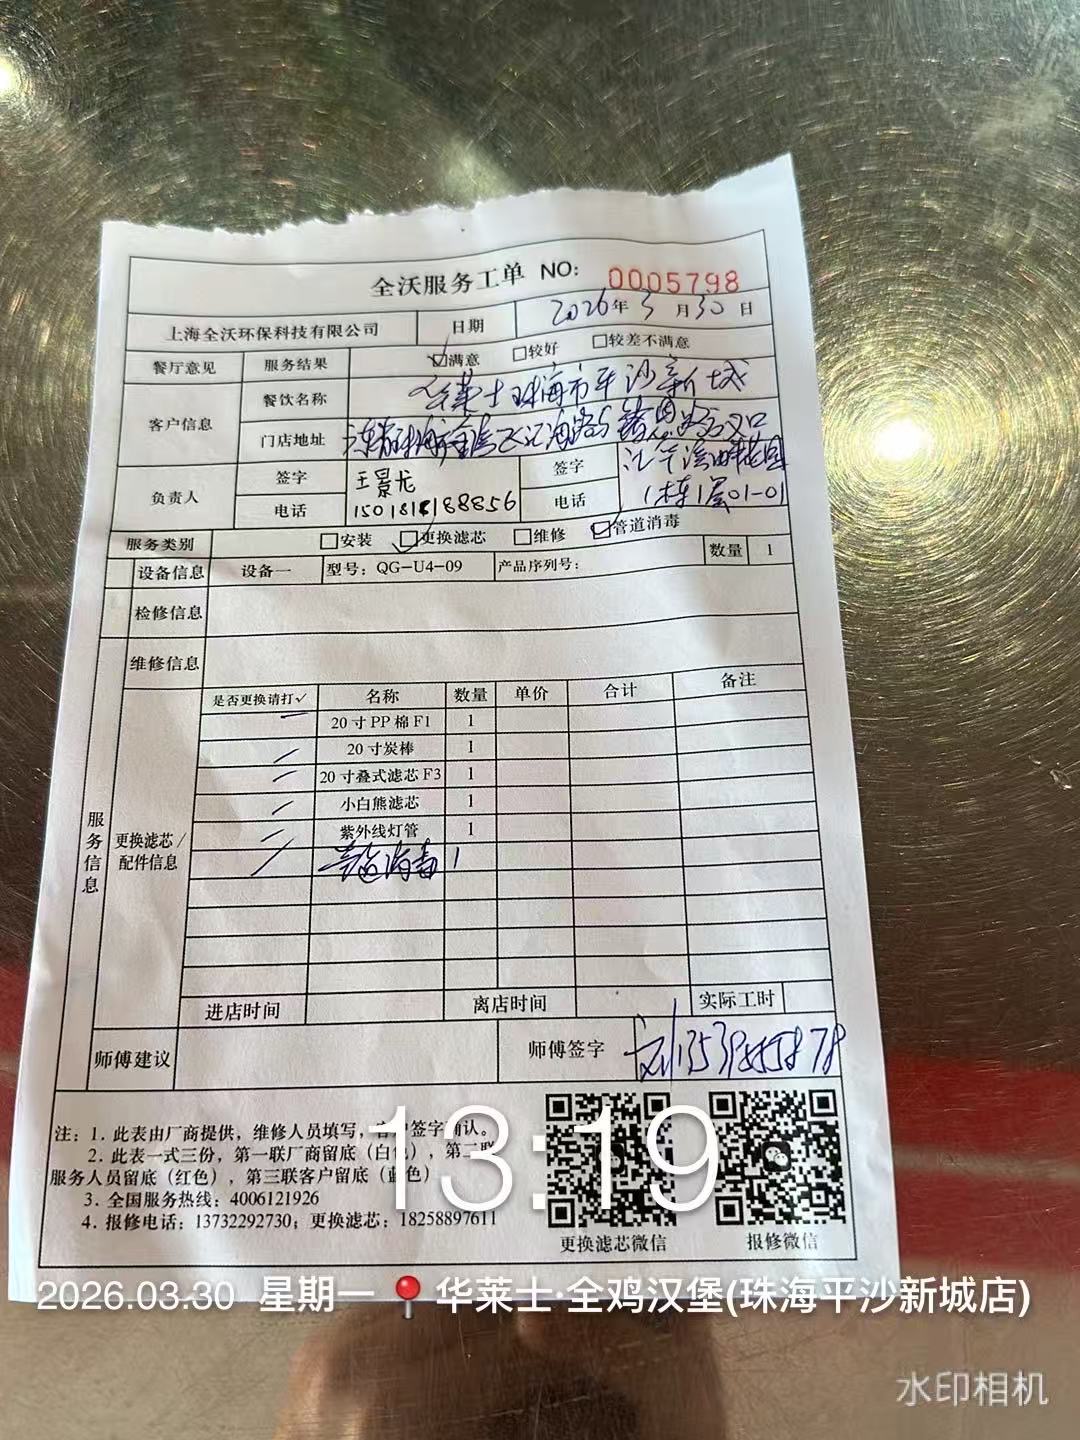 全沃服务工单 NO: 0005798
上海全沃环保科技有限公司 日期 2026年3月30日
餐厅意见 服务结果 ☑满意 □较好 □较差不满意
客户信息 餐饮名称 华莱士珠海市平沙新城
门店地址
汇平溪畔花园
1栋1层01-01
负责人 签字 王景龙 签字
电话 电话
服务类别 □安装 ☑更换滤芯 □维修 ☑管道消毒
设备信息 设备一 型号: QG-U4-09 产品序列号: 数量 1
检修信息
维修信息
服务信息
更换滤芯/配件信息
是否更换请打✓ 名称 数量 单价 合计 备注
20寸PP棉F1 1
20寸炭棒 1
20寸叠式滤芯F3 1
小白熊滤芯 1
紫外线灯管 1
管道消毒 1
进店时间 离店时间 实际工时
师傅建议 师傅签字
注: 1. 此表由厂商提供，维修人员填写，客户签字确认。
2. 此表一式三份，第一联厂商留底（白色），第二联
服务人员留底（红色），第三联客户留底（蓝色）
3. 全国服务热线: 4006121926
4. 报修电话: 13732292730; 更换滤芯: 18258897611
更换滤芯微信 报修微信
13:19
2026.03.30 星期一 华莱士·全鸡汉堡(珠海平沙新城店)
水印相机